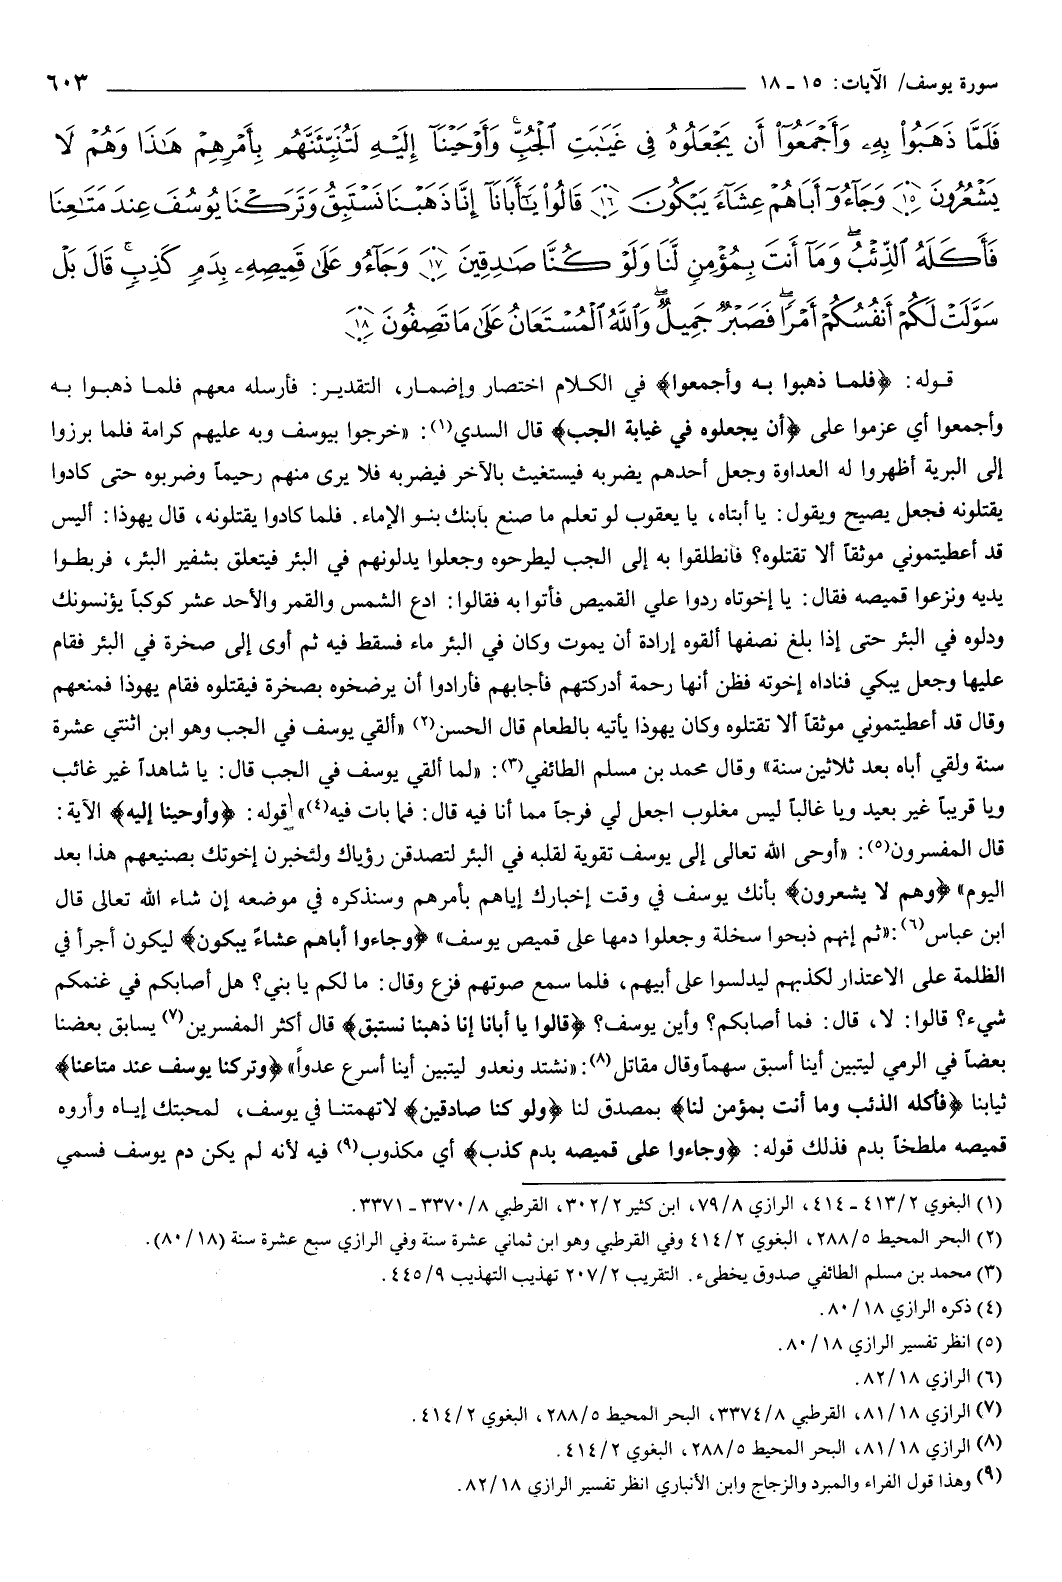 سورة يوسف/ الآيات: ١٥ ـ ١٨ ٦٠٣
فَلَمَّا ذَهَبُوا۟ بِهِۦ وَأَجْمَعُوٓا۟ أَن يَجْعَلُوهُ فِى غَيَـٰبَتِ ٱلْجُبِّ ۚ وَأَوْحَيْنَآ إِلَيْهِ لَتُنَبِّئَنَّهُم بِأَمْرِهِمْ هَـٰذَا وَهُمْ لَا
يَشْعُرُونَ ﴿١٥﴾ وَجَآءُوٓ أَبَاهُمْ عِشَآءً يَبْكُونَ ﴿١٦﴾ قَالُوا۟ يَـٰٓأَبَانَآ إِنَّا ذَهَبْنَا نَسْتَبِقُ وَتَرَكْنَا يُوسُفَ عِندَ مَتَـٰعِنَا
فَأَكَلَهُ ٱلذِّئْبُ ۖ وَمَآ أَنتَ بِمُؤْمِنٍ لَّنَا وَلَوْ كُنَّا صَـٰدِقِينَ ﴿١٧﴾ وَجَآءُو عَلَىٰ قَمِيصِهِۦ بِدَمٍ كَذِبٍ ۚ قَالَ بَلْ
سَوَّلَتْ لَكُمْ أَنفُسُكُمْ أَمْرًا ۖ فَصَبْرٌ جَمِيلٌ ۖ وَٱللَّهُ ٱلْمُسْتَعَانُ عَلَىٰ مَا تَصِفُونَ ﴿١٨﴾
قوله: ﴿فلما ذهبوا به وأجمعوا﴾ في الكلام اختصار وإضمار، التقدير: فأرسله معهم فلما ذهبوا به
وأجمعوا أي عزموا على ﴿أن يجعلوه في غيابة الجب﴾ قال السدي(١): «خرجوا بيوسف وبه عليهم كرامة فلما برزوا
إلى البرية أظهروا له العداوة وجعل أحدهم يضربه فيستغيث بالآخر فيضربه فلا يرى منهم رحيماً وضربوه حتى كادوا
يقتلونه فجعل يصيح ويقول: يا أبتاه، يا يعقوب لو تعلم ما صنع بابنك بنو الإماء. فلما كادوا يقتلونه، قال يهوذا: أليس
قد أعطيتموني موثقاً ألا تقتلوه؟ فانطلقوا به إلى الجب ليطرحوه وجعلوا يدلونهم في البئر فيتعلق بشفير البئر، فربطوا
يديه ونزعوا قميصه فقال: يا إخوتاه ردوا علي القميص فأتوا به فقالوا: ادع الشمس والقمر والأحد عشر كوكباً يؤنسونك
ودلوه في البئر حتى إذا بلغ نصفها ألقوه إرادة أن يموت وكان في البئر ماء فسقط فيه ثم أوى إلى صخرة في البئر فقام
عليها وجعل يبكي فناداه إخوته فظن أنها رحمة أدركتهم فأجابهم فأرادوا أن يرضخوه بصخرة فيقتلوه فقام يهوذا فمنعهم
وقال قد أعطيتموني موثقاً ألا تقتلوه وكان يهوذا يأتيه بالطعام قال الحسن(٢) «ألقي يوسف في الجب وهو ابن اثنتي عشرة
سنة ولقي أباه بعد ثلاثين سنة» وقال محمد بن مسلم الطائفي(٣): «لما ألقي يوسف في الجب قال: يا شاهداً غير غائب
ويا قريباً غير بعيد ويا غالباً ليس مغلوب اجعل لي فرجاً مما أنا فيه قال: فما بات فيه(٤)» قوله: ﴿وأوحينا إليه﴾ الآية:
قال المفسرون(٥): «أوحى الله تعالى إلى يوسف تقوية لقلبه في البئر لتصدقن رؤياك ولتخبرن إخوتك بصنيعهم هذا بعد
اليوم» ﴿وهم لا يشعرون﴾ بأنك يوسف في وقت إخبارك إياهم بأمرهم وسنذكره في موضعه إن شاء الله تعالى قال
ابن عباس(٦): «ثم إنهم ذبحوا سخلة وجعلوا دمها على قميص يوسف» ﴿وجاءوا أباهم عشاءً يبكون﴾ ليكون أجرأ في
الظلمة على الاعتذار لكذبهم ليدلسوا على أبيهم، فلما سمع صوتهم فزع وقال: ما لكم يا بني؟ هل أصابكم في غنمكم
شيء؟ قالوا: لا، قال: فما أصابكم؟ وأين يوسف؟ ﴿قالوا يا أبانا إنا ذهبنا نستبق﴾ قال أكثر المفسرين(٧) يسابق بعضنا
بعضاً في الرمي ليتبين أينا أسبق سهماً وقال مقاتل(٨): «نشتد ونعدو ليتبين أينا أسرع عدواً» ﴿وتركنا يوسف عند متاعنا﴾
ثيابنا ﴿فأكله الذئب وما أنت بمؤمن لنا﴾ بمصدق لنا ﴿ولو كنا صادقين﴾ لاتهمتنا في يوسف، لمحبتك إياه وأروه
قميصه ملطخاً بدم فذلك قوله: ﴿وجاءوا على قميصه بدم كذب﴾ أي مكذوب(٩) فيه لأنه لم يكن دم يوسف فسمي
(١) البغوي ٤١٣/٢ ـ ٤١٤، الرازي ٧٩/٨، ابن كثير ٣٠٢/٢، القرطبي ٣٣٧٠/٨ ـ ٣٣٧١.
(٢) البحر المحيط ٢٨٨/٥، البغوي ٤١٤/٢ وفي القرطبي وهو ابن ثماني عشرة سنة وفي الرازي سبع عشرة سنة (٨٠/١٨).
(٣) محمد بن مسلم الطائفي صدوق يخطىء. التقريب ٢٠٧/٢ تهذيب التهذيب ٤٤٥/٩.
(٤) ذكره الرازي ٨٠/١٨.
(٥) انظر تفسير الرازي ٨٠/١٨.
(٦) الرازي ٨٢/١٨.
(٧) الرازي ٨١/١٨، القرطبي ٣٣٧٤/٨، البحر المحيط ٢٨٨/٥، البغوي ٤١٤/٢.
(٨) الرازي ٨١/١٨، البحر المحيط ٢٨٨/٥، البغوي ٤١٤/٢.
(٩) وهذا قول الفراء والمبرد والزجاج وابن الأنباري انظر تفسير الرازي ٨٢/١٨.